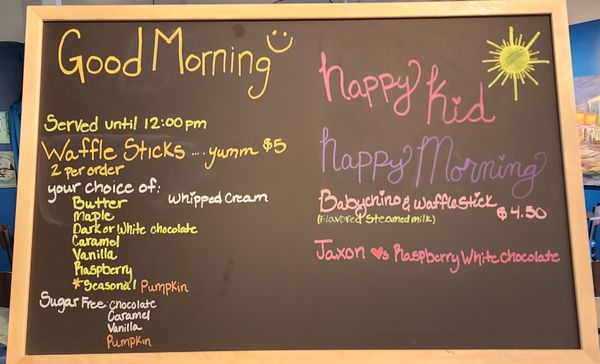 Good Morning
Served until 12:00pm
Waffle Sticks .... yumm $5
2 per order
your choice of:
Whipped Cream
Butter
Maple
Dark or White chocolate
Caramel
Vanilla
Raspberry
*Seasonal Pumpkin
Sugar Free: Chocolate
Caramel
Vanilla
Pumpkin
happy Kid
happy Morning
Babychino & Waffle stick
$4.50
(Flavored Steamed milk)
Jaxon ♥s Raspberry White Chocolate